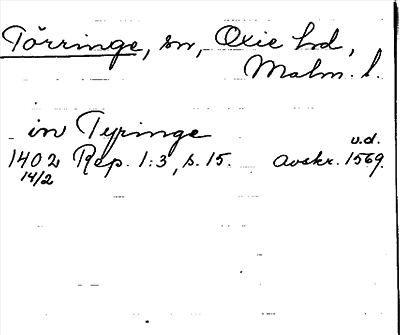 Törringe, sn, Oxie hd,
Malm. l.
in Tyringe
v.d.
1402 Rep. 1:3, s. 15. avskr. 1569.
14/2